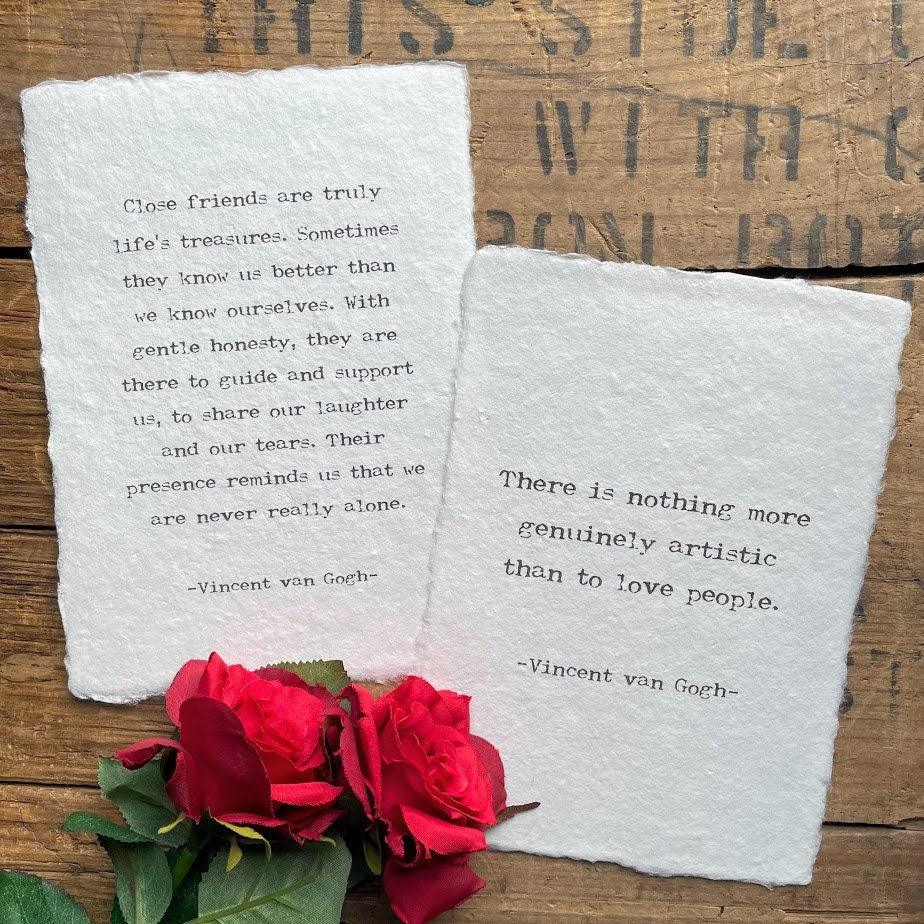 THIS SIDE U
WITH
Close friends are truly
life's treasures. Sometimes
they know us better than
we know ourselves. With
gentle honesty, they are
there to guide and support
us, to share our laughter
and our tears. Their
presence reminds us that we
are never really alone.
-Vincent van Gogh-
There is nothing more
genuinely artistic
than to love people.
-Vincent van Gogh-